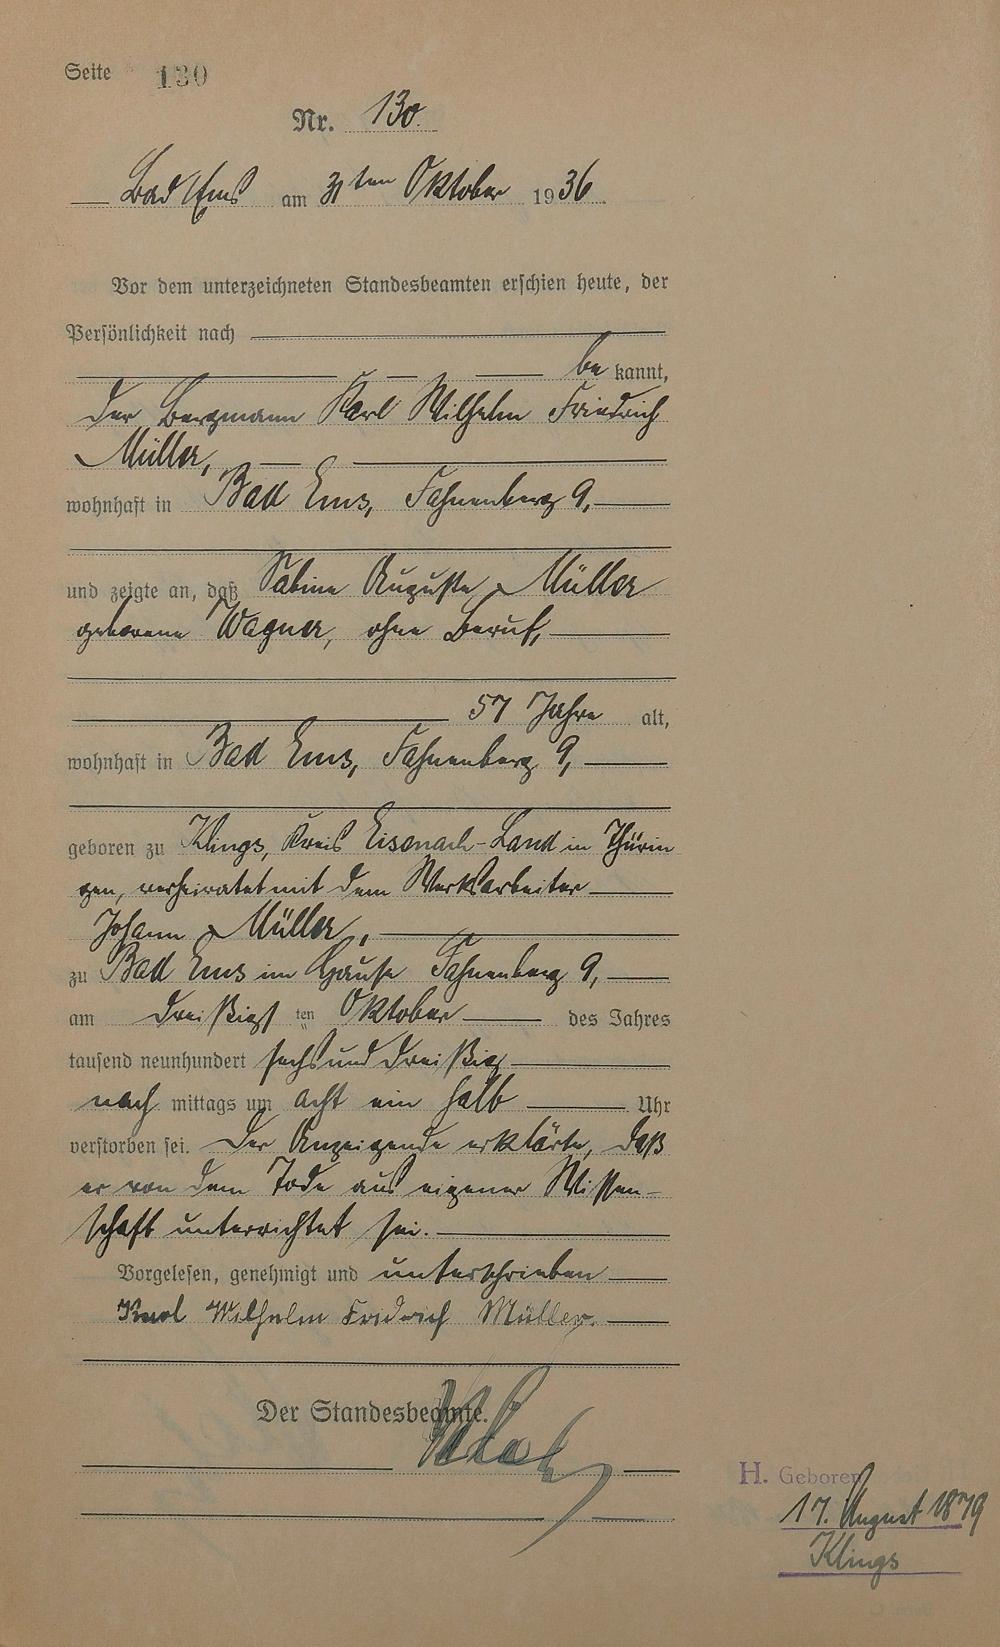 Seite 130
Nr. 130.
Bad Ems am 31ten Oktober 1936.
Vor dem unterzeichneten Standesbeamten erschien heute, der
Persönlichkeit nach
be kannt,
der Bergmann Karl Wilhelm Friedrich
Müller,
wohnhaft in Bad Ems, Fahnenberg 9,
und zeigte an, daß Sabine Auguste Müller
geborene Wagner, ohne Beruf,
57 Jahre alt,
wohnhaft in Bad Ems, Fahnenberg 9,
geboren zu Klings, Kreis Eisenach-Land in Thürin
gen, verheiratet mit dem Werksarbeiter
Johann Müller,
zu Bad Ems im Hause Fahnenberg 9,
am dreißigsten Oktober des Jahres
tausend neunhundert sechsunddreißig
nach mittags um acht ein halb Uhr
verstorben sei. Der Anzeigende erklärte, daß
er von dem Tode aus eigener Wissen-
schaft unterrichtet sei.
Vorgelesen, genehmigt und unterschrieben
Karl Wilhelm Fridrich Müller.
Der Standesbeamte.
H. Geboren
17. August 1879
Klings